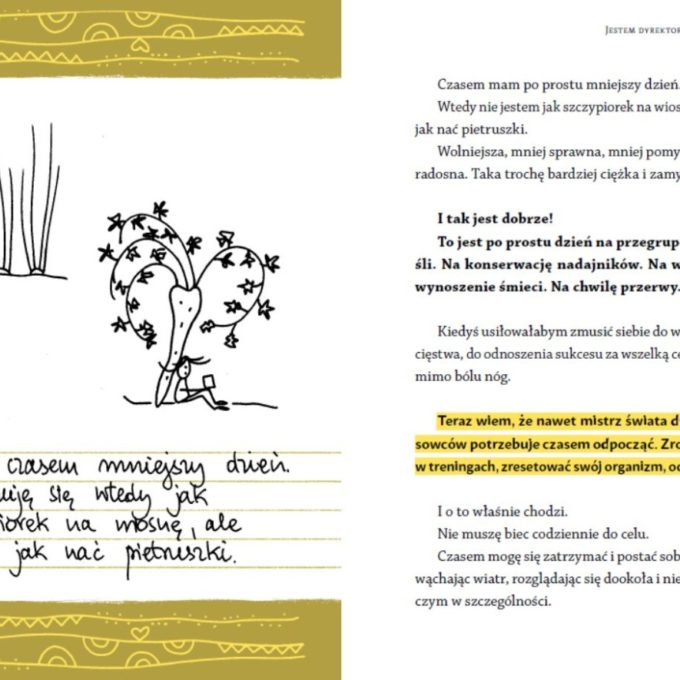 czasem mniejszy dzień.
się wtedy jak
na wiosnę, ale
jak nać pietruszki.
JESTEM DYREKTOR
Czasem mam po prostu mniejszy dzień.
Wtedy nie jestem jak szczypiorek na wios
jak nać pietruszki.
Wolniejsza, mniej sprawna, mniej pomy
radosna. Taka trochę bardziej ciężka i zamy
I tak jest dobrze!
To jest po prostu dzień na przegrupo
śli. Na konserwację nadajników. Na w
wynoszenie śmieci. Na chwilę przerwy.
Kiedyś usiłowałabym zmusić siebie do w
cięstwa, do odnoszenia sukcesu za wszelką ce
mimo bólu nóg.
Teraz wiem, że nawet mistrz świata d
sowców potrzebuje czasem odpocząć. Zro
w treningach, zresetować swój organizm, od
I o to właśnie chodzi.
Nie muszę biec codziennie do celu.
Czasem mogę się zatrzymać i postać sob
wąchając wiatr, rozglądając się dookoła i nie
czym w szczególności.